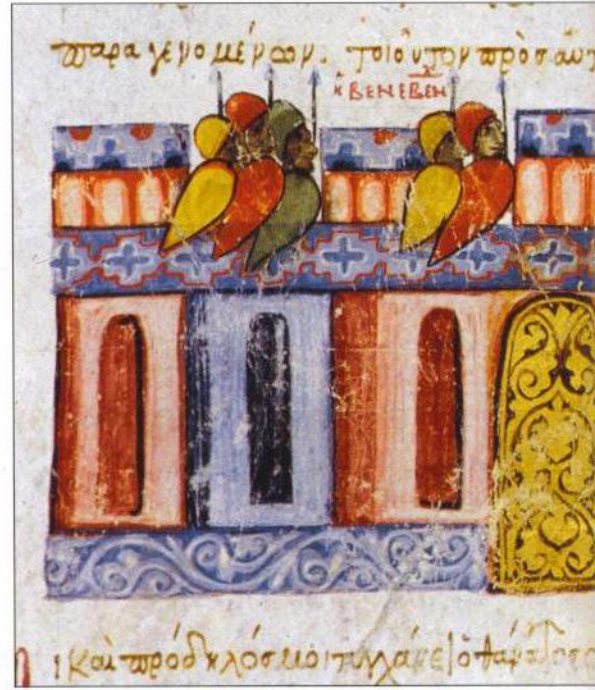 παραγενομένων· τοιοῦτον πρὸς αὐτ
ΒΕΝΕΒΕΝ
καὶ πρόδηλός μοι τυγχάνει ὁ θάνατος